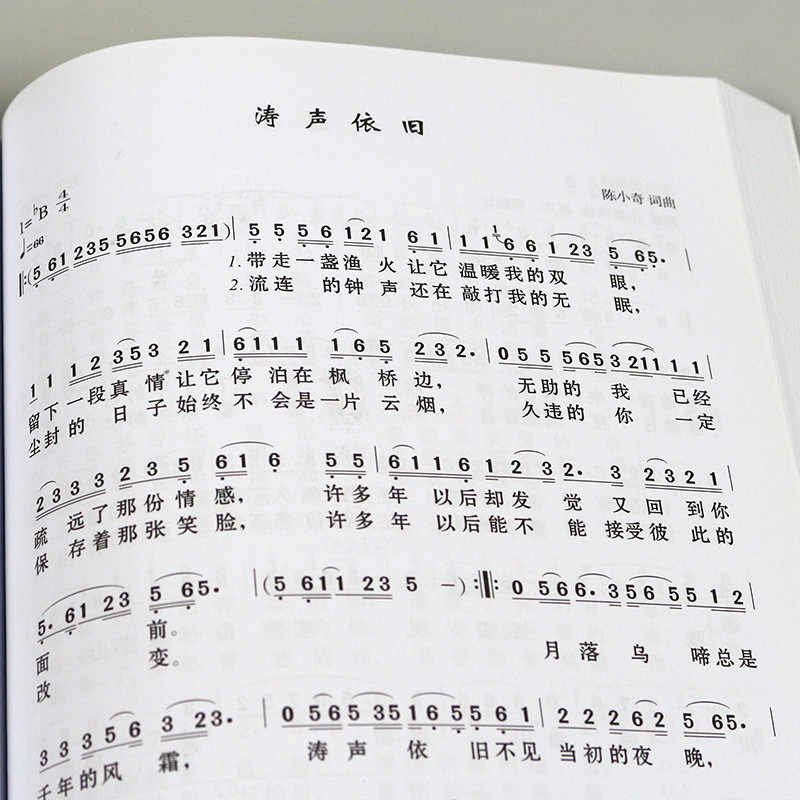 涛声依旧
陈小奇 词曲
1=♭B 4/4
♩=66
‖:(5 61 235 5656 321)| 5 5 56 121 61 | 11 1 66 123 5 65· |
1. 带走一盏渔火让它温暖我的双眼，
2. 流连的钟声还在敲打我的无眠，
1 1 12 353 21 | 6111 1765 232· | 055 565 3211 11 |
留下一段真情让它停泊在枫桥边，无助的我已经
尘封的日子始终不会是一片云烟，久违的你一定
2333 235 616 55 | 6116 123 2·3 2321 |
疏远了那份情感，许多年以后却发觉又回到你
保存着那张笑脸，许多年以后能不能接受彼此的
5·6123 565· | (5 611 23 5 –):‖ 0566·3565 512 |
面前。月落乌啼总是
改变。
33356 323· | 056535165561 | 22262 565· |
千年的风霜，涛声依旧不见当初的夜晚，